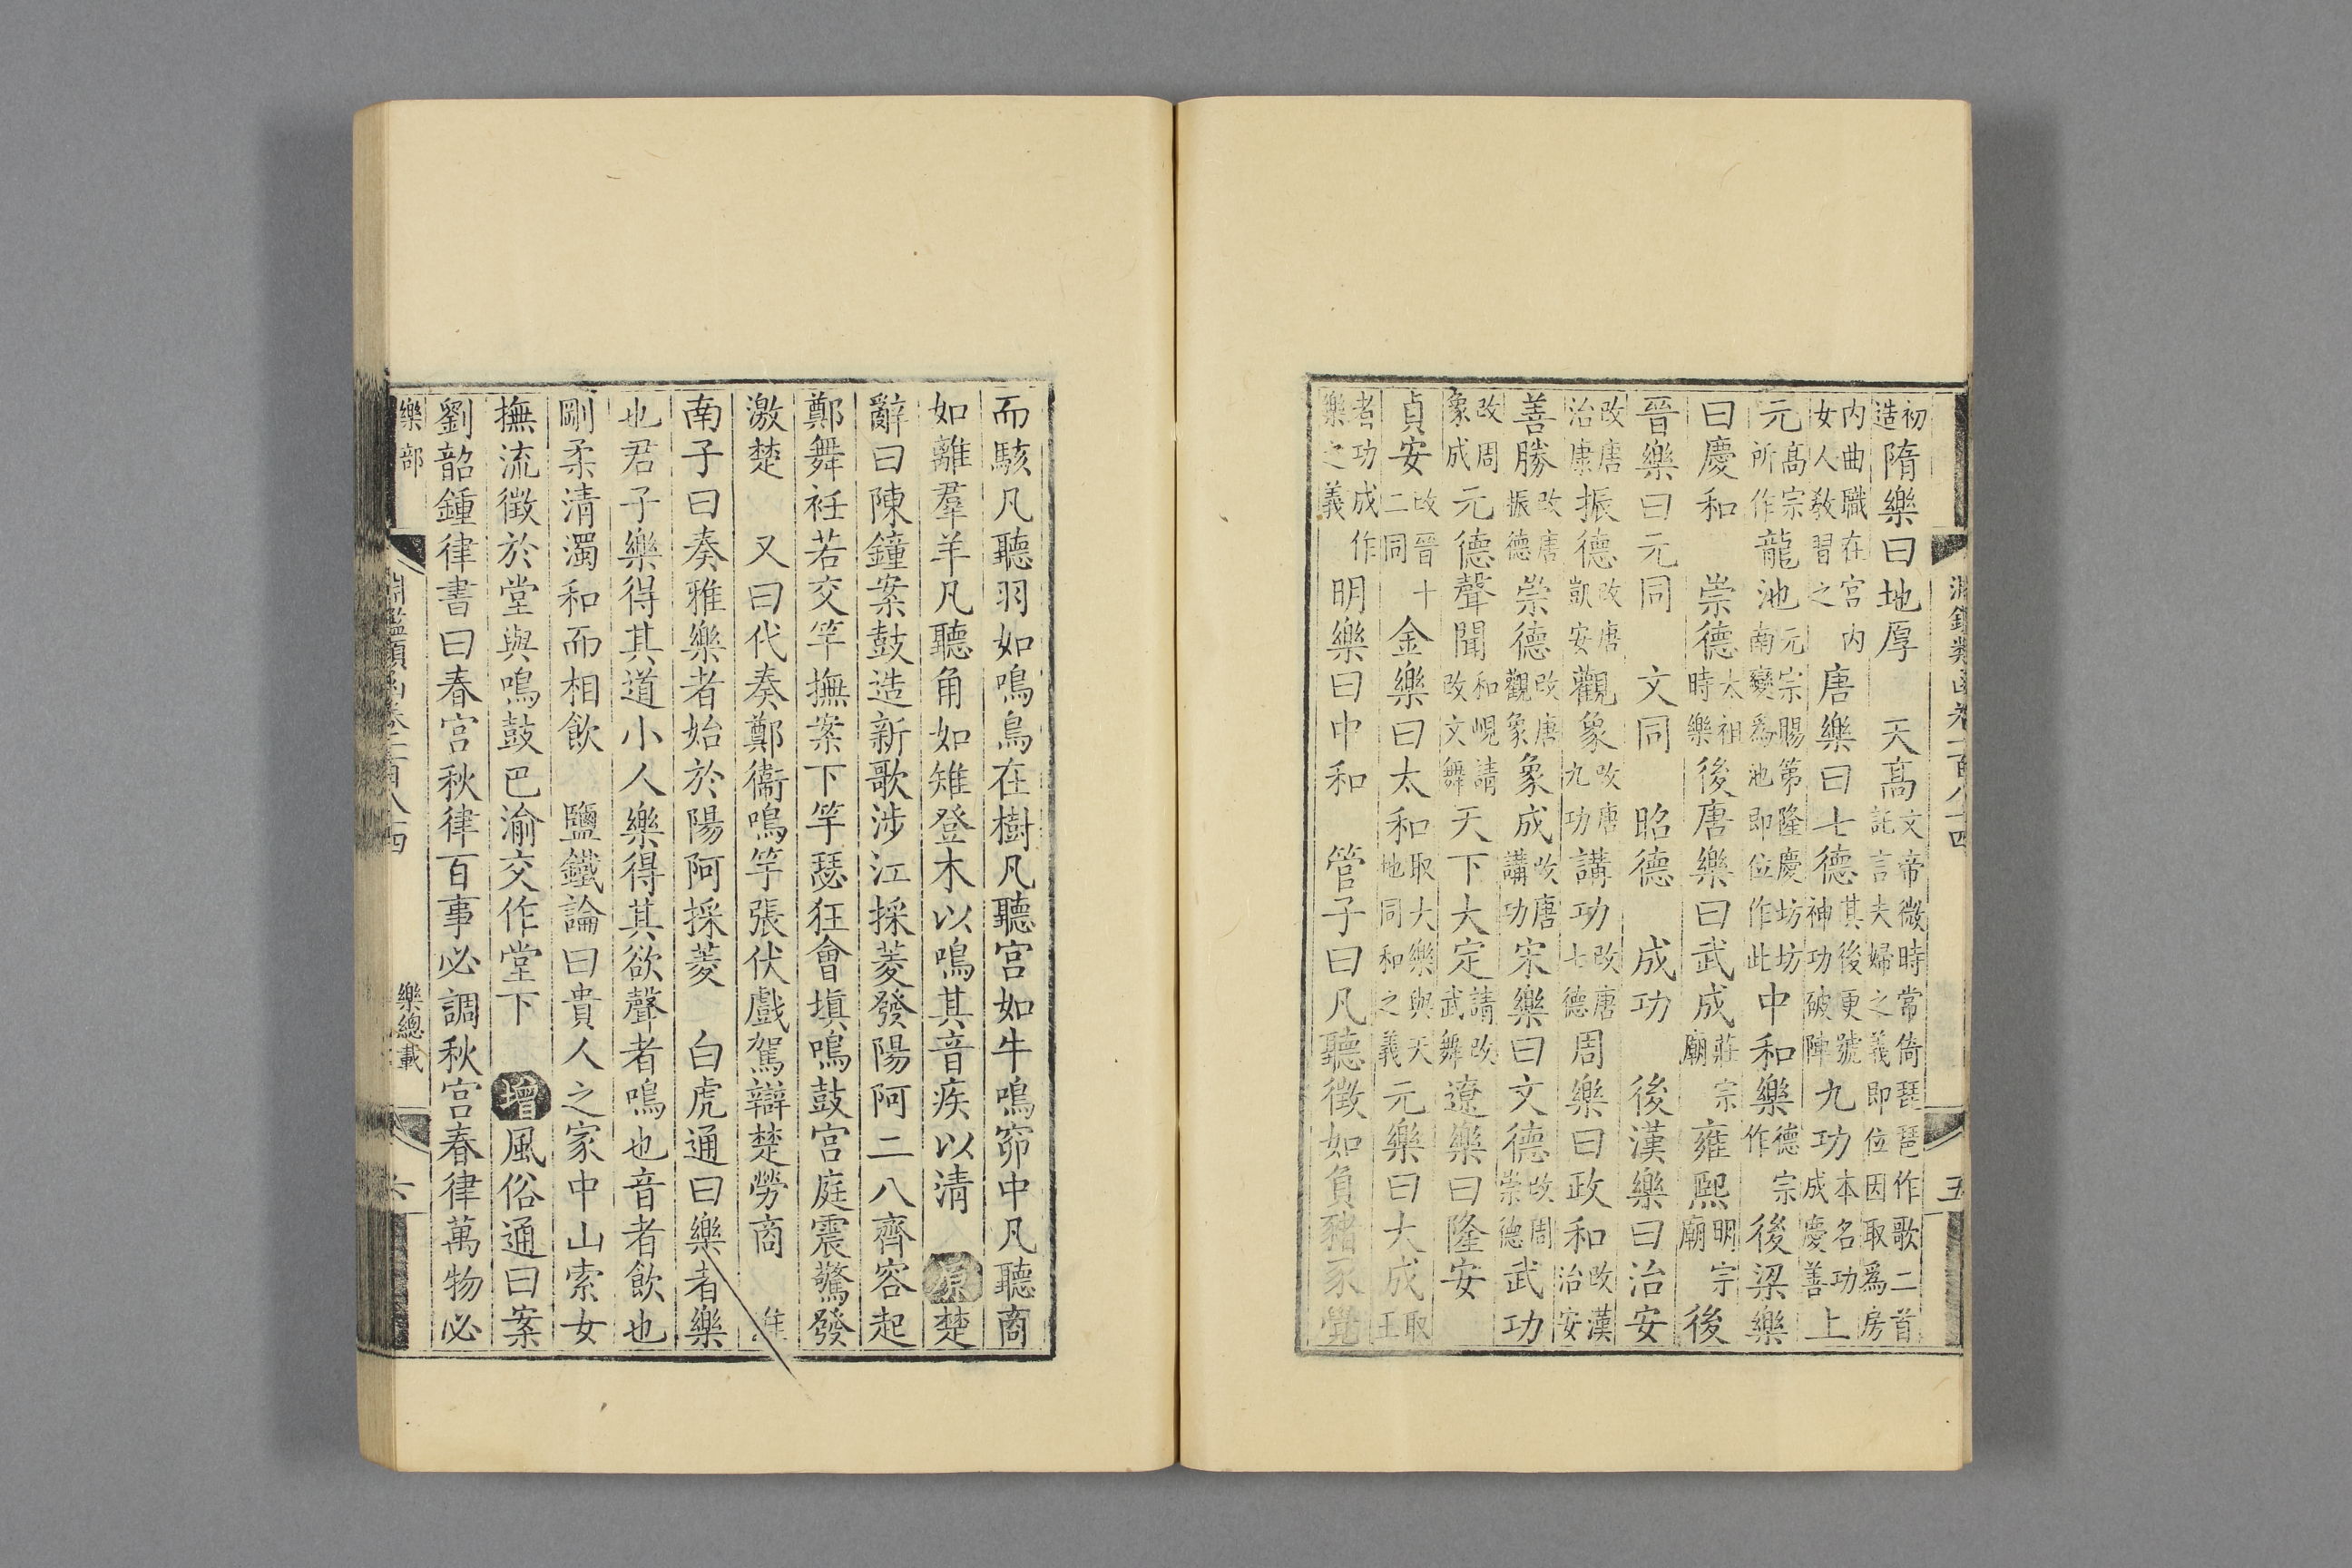 淵鑑類函卷一百八十四 五
初造隋樂曰地厚 天高文帝微時常倚琵琶作歌二首託言夫婦之義即位因取為房
內曲職在宮內女人教習之 唐樂曰七德其後更號神功破陣九功本名功成慶善上
元高宗所作龍池元宗賜第隆慶坊坊南變為池即位作此中和樂德宗作後梁樂
曰慶和 崇德太祖時樂後唐樂曰武成莊宗廟雍熙明宗廟後
晉樂曰元同 文同 昭德 成功 後漢樂曰治安
改唐治康振德改唐凱安觀象改唐九功講功改唐七德周樂曰政和改漢治安
善勝改唐振德崇德改唐觀象象成改唐講功宋樂曰文德改周崇德武功
改周象成元德聲聞和峴請改文舞天下大定請改武舞遼樂曰隆安
貞安改晉十二同金樂曰太和取大樂與天地同和之義元樂曰大成取王
者功成作樂之義明樂曰中和 管子曰凡聽徵如負豬豕覺
而駭凡聽羽如鳴鳥在樹凡聽宮如牛鳴窌中凡聽商
如離羣羊凡聽角如雉登木以鳴其音疾以清 原楚
辭曰陳鐘案鼓造新歌涉江採菱發陽阿二八齊容起
鄭舞衽若交竿撫案下竽瑟狂會塡鳴鼓宫庭震驚發
激楚 又曰代奏鄭衞鳴竽張伏戲駕辯楚勞商 淮
南子曰奏雅樂者始於陽阿採菱 白虎通曰樂者樂
也君子樂得其道小人樂得其欲聲者鳴也音者飲也
剛柔清濁和而相飲 鹽鐵論曰貴人之家中山索女
撫流徴於堂與鳴鼓巴渝交作堂下 增風俗通曰案
劉韶鍾律書曰春宮秋律百事必調秋宮春律萬物必
樂部 淵鑑類函卷一百八十四 樂總載 六